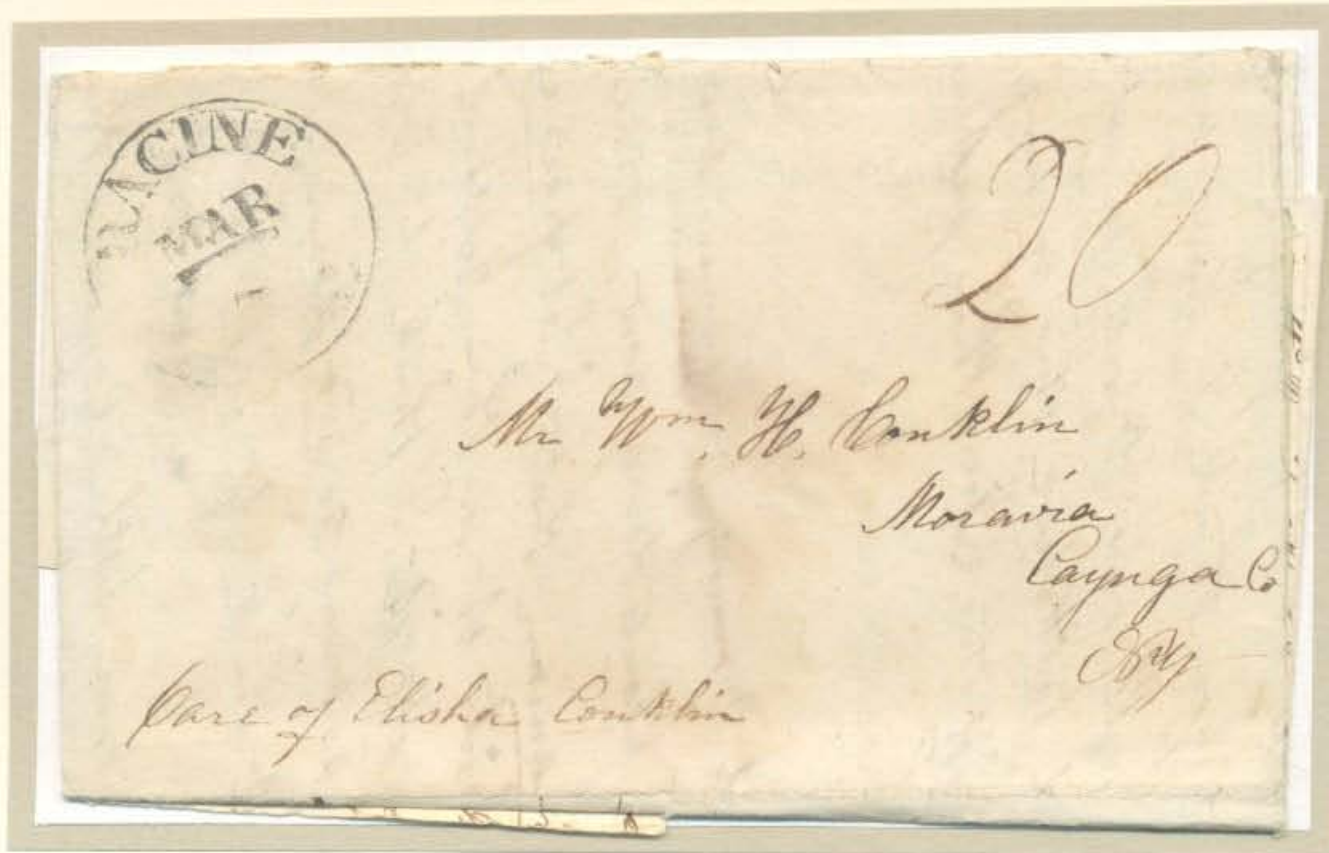 RACINE
MAR
20
Mr Wm. H. Conklin
Moravia
Cayuga Co
NY
Care of Elisha Conklin